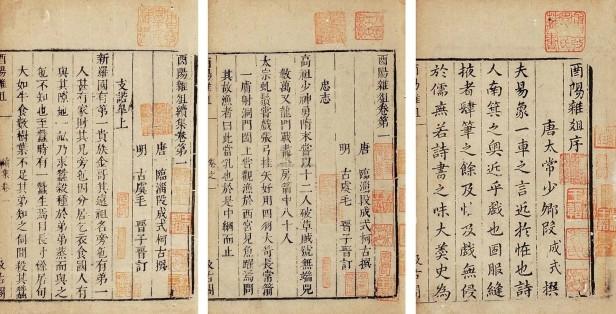 酉陽雜俎序
唐太常少卿段成式撰
夫易象一車之言近於怪也詩
人南箕之奧近乎戲也固服縫
掖者肆筆之餘及怪及戲無侵
於儒無若詩書之味大羹史為
酉陽雜俎卷第一
唐 臨淄段成式柯古撰
明 古虞毛 晉子晉訂
忠志
高祖少神勇隋末嘗以十二人破草賊號無端兒
數萬又龍門戰盡一房箭中八十人
太宗虬鬚嘗戲張弓挂矢好用四羽大笴長常箭
一膚射洞門闔上嘗觀漁於西宮見魚躍焉問
其故漁者曰此當乳也於是中網而止
酉陽雜俎 卷之一
酉陽雜俎續集卷第一
唐 臨淄段成式柯古撰
明 古虞毛 晉子晉訂
支諾皋上
新羅國有第一貴族金哥其遠祖名旁㐌有弟一
人甚有家財其兄旁㐌因分居乞衣食國人有
與其隙地一畝乃求蠶穀種於弟弟蒸而與之
㐌不知也至蠶時有一蠶生焉日長寸餘居旬
大如牛食數樹葉不足其弟知之伺間殺其蠶
酉陽雜俎 續集卷一